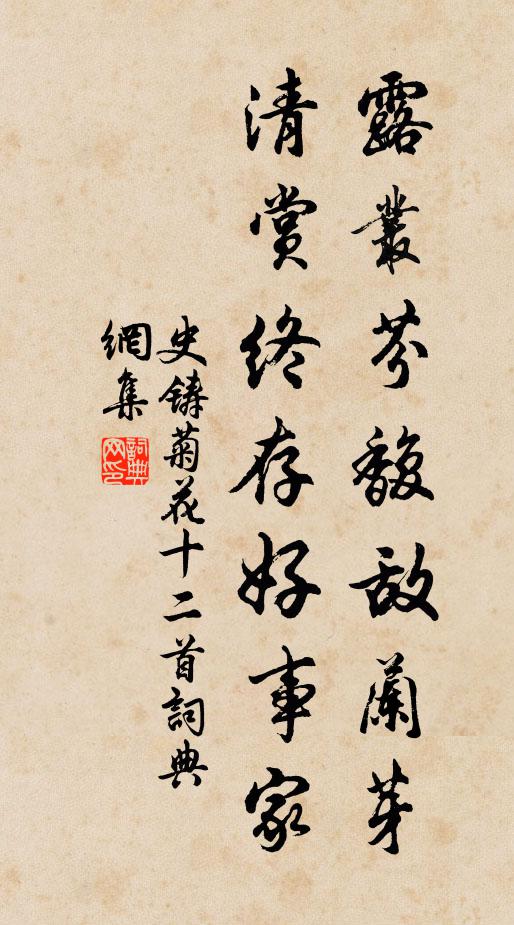 露叢芬馥敵蘭芽
清賞終存好事家
史鑄菊花十二首詞典
網集
詞典
网印